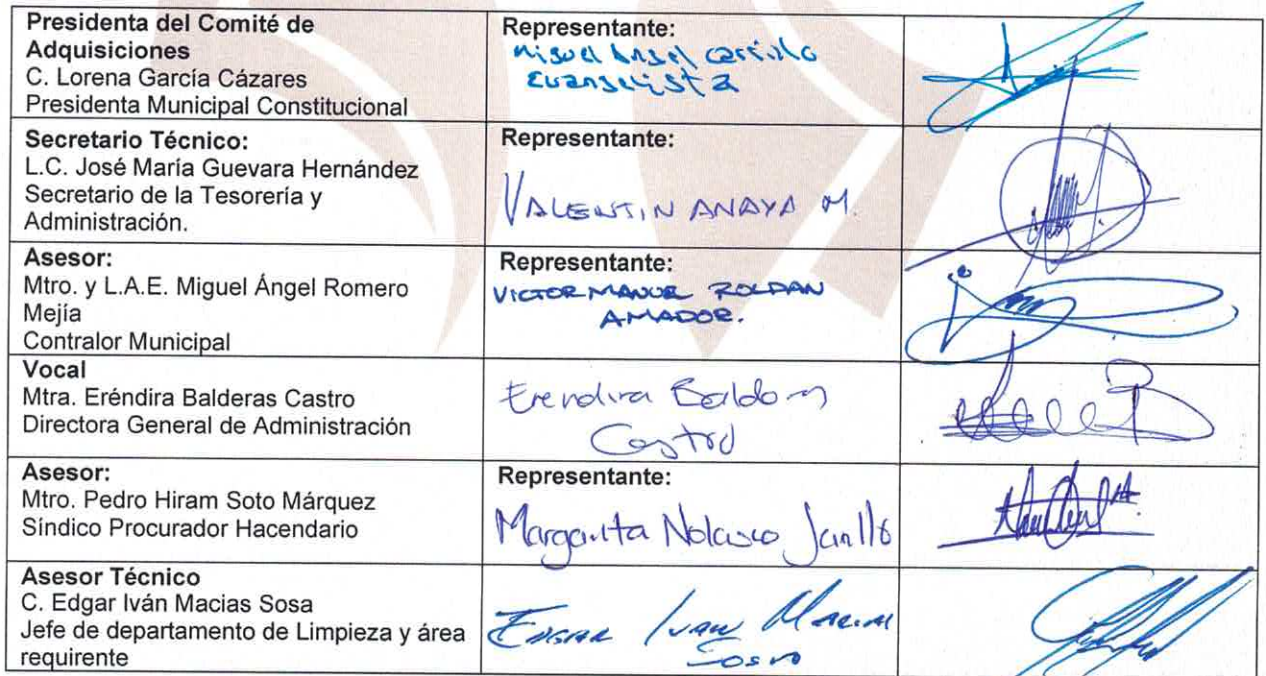 Presidenta del Comité de
Adquisiciones
C. Lorena García Cázares
Presidenta Municipal Constitucional
Representante:
Miguel Angel Carrillo
Evangelista
Secretario Técnico:
L.C. José María Guevara Hernández
Secretario de la Tesorería y
Administración.
Representante:
VALENTIN ANAYA M.
Asesor:
Mtro. y L.A.E. Miguel Ángel Romero
Mejía
Contralor Municipal
Representante:
VICTOR MANUEL ROLDAN
AMADOR.
Vocal
Mtra. Eréndira Balderas Castro
Directora General de Administración
Erendira Balderas
Castro
Asesor:
Mtro. Pedro Hiram Soto Márquez
Síndico Procurador Hacendario
Representante:
Margarita Nolasco
Asesor Técnico
C. Edgar Iván Macias Sosa
Jefe de departamento de Limpieza y área
requirente
EDGAR IVAN MACIAS
SOSA